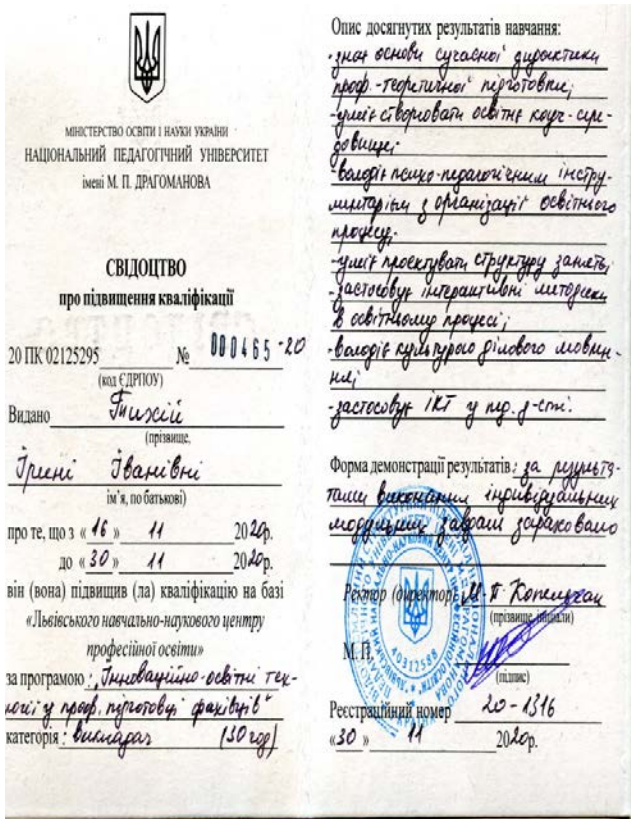 МІНІСТЕРСТВО ОСВІТИ І НАУКИ УКРАЇНИ
НАЦІОНАЛЬНИЙ ПЕДАГОГІЧНИЙ УНІВЕРСИТЕТ
імені М. П. ДРАГОМАНОВА
СВІДОЦТВО
про підвищення кваліфікації
20 ПК 02125295 № 000465-20
(код ЄДРПОУ)
Видано Тихій
(прізвище,
Ірині Іванівні
ім'я, по батькові)
про те, що з «16» 11 2020р.
до «30» 11 2020р.
він (вона) підвищив (ла) кваліфікацію на базі
«Львівського навчально-наукового центру
професійної освіти»
за програмою: „Інноваційно-освітні тех-
нології у проф. підготовці фахівців"
категорія: викладач (30 год)
Опис досягнутих результатів навчання:
- знає основи сучасної дидактики
проф.-теоретичної підготовки;
- уміє створювати освітнє коуч-сере-
довище;
- володіє психо-педагогічним інстру-
ментарієм з організації освітнього
процесу;
- уміє проектувати структуру занять;
- застосовує інтерактивні методики
в освітньому процесі;
- володіє культурою ділового мовлен-
ня;
- застосовує ІКТ у пед. д-сті.
Форма демонстрації результатів: за результа-
тами виконання індивідуальних
модульних завдань зараховано
Ректор (директор) М.П.
(прізвище, ініціали)
М. П.
(підпис)
40312588
Реєстраційний номер 20-1316
«30» 11 2020р.